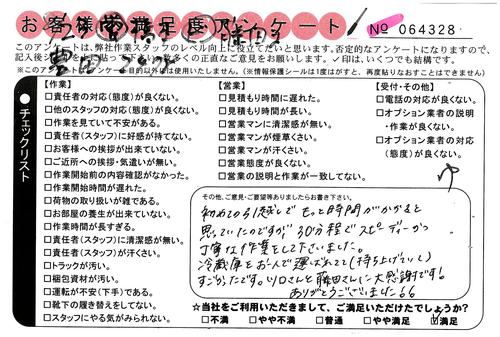 お客様満足度アンケート
№ 064328
このアンケートは、弊社作業スタッフのレベル向上に役立てたいと思います。否定的なアンケートになりますので、
記入後シールを貼って下さい。多くの正直なご意見をお願いします。✓印は、いくつでも結構です。
※このアンケートはアンケート目的以外では使用いたしません。(※情報保護シールは1度はがすと、再度貼りなおすことはできません)
チェックリスト
【作業】
□責任者の対応(態度)が良くない。
□他のスタッフの対応(態度)が良くない。
□作業を見ていて不安がある。
□責任者(スタッフ)に好感が持てない。
□お客様への挨拶が出来ていない。
□ご近所への挨拶・気遣いが無い。
□作業開始前の内容確認がなかった。
□作業開始時間が遅れた。
□荷物の取り扱いが雑である。
□お部屋の養生が出来ていない。
□作業時間が長すぎる。
□責任者(スタッフ)に清潔感が無い。
□責任者(スタッフ)が汗くさい。
□トラックが汚い。
□梱包資材が汚い。
□運転が不安(下手)である。
□靴下の履き替えをしてない。
□スタッフにやる気がみられない。
【営業】
□見積もり時間に遅れた。
□見積もり時間が長い。
□営業マンに清潔感が無い。
□営業マンが煙草くさい。
□営業マンが汗くさい。
□営業態度が良くない。
□営業の説明と作業が一致してない。
【受付・その他】
□電話の対応が良くない。
□オプション業者の説明
・作業が良くない。
□オプション業者の対応
(態度)が良くない。
その他、ご意見・ご要望等ありましたらお書き下さい。
初めての引越しでもっと時間がかかると
思っていたのですが30分程でスピーディーかつ
丁寧な作業をして下さいました。
冷蔵庫をお一人で運ばれてて(持ち上げていて)
すごかったです。川口さんと藤田さんに大感謝です!
ありがとうございました
☆当社をご利用いただきまして、ご満足いただけたでしょうか?
□不満 □やや不満 □普通 □やや満足 ☑満足